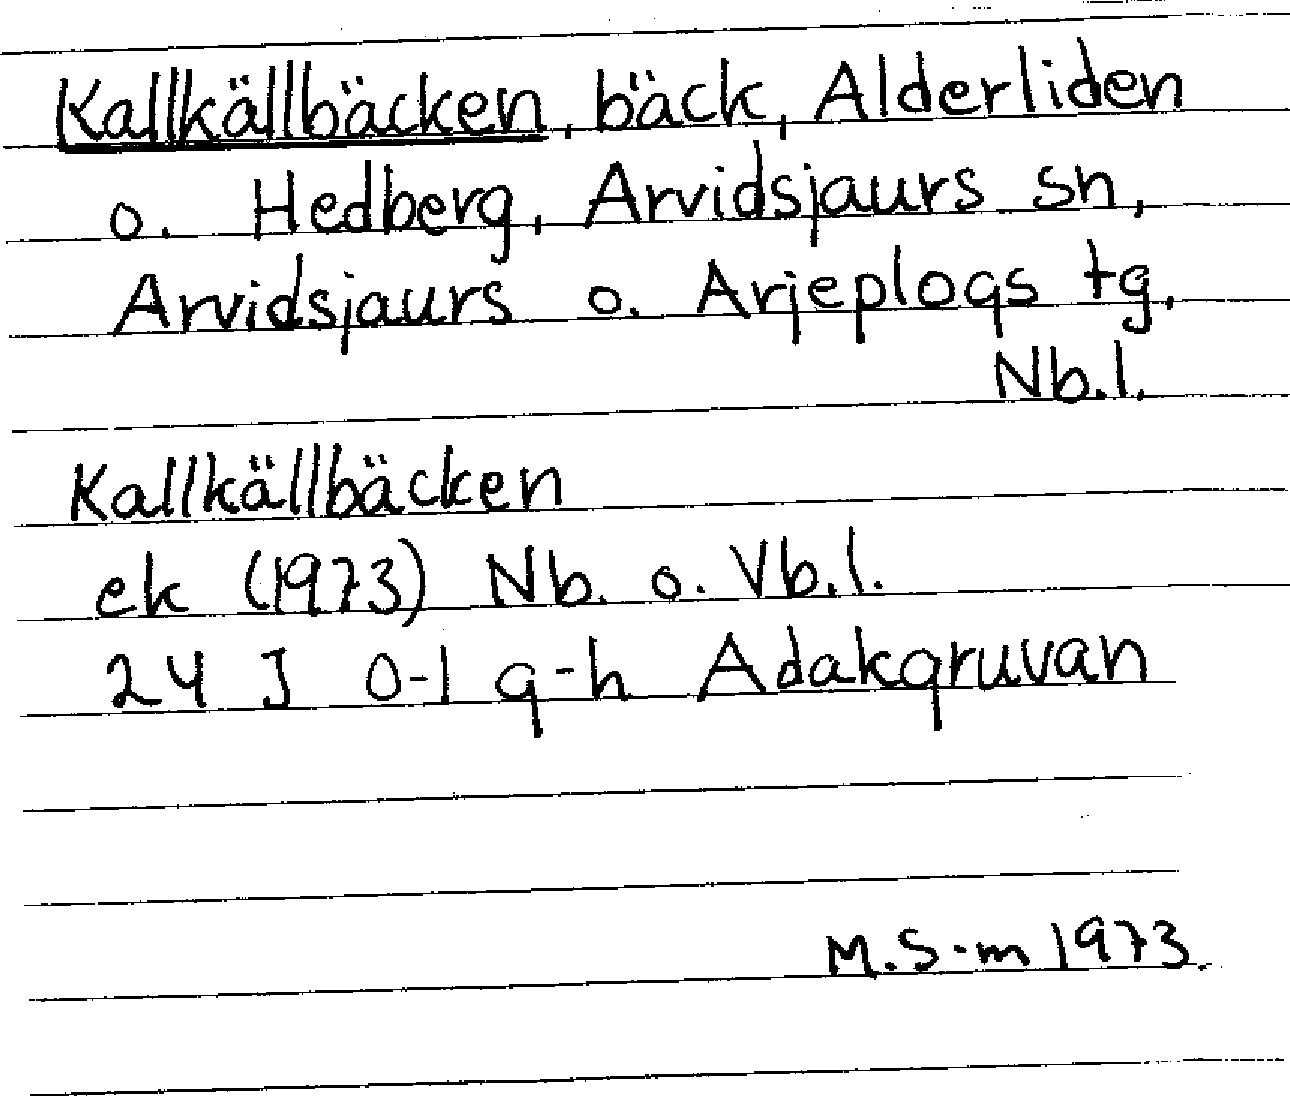 Kallkällbäcken, bäck, Alderliden
o. Hedberg, Arvidsjaurs sn,
Arvidsjaurs o. Arjeplogs tg,
Nb.l.
Kallkällbäcken
ek (1973) Nb. o. Vb.l.
24 J 0-1 g-h Adakgruvan
M.S-m 1973.